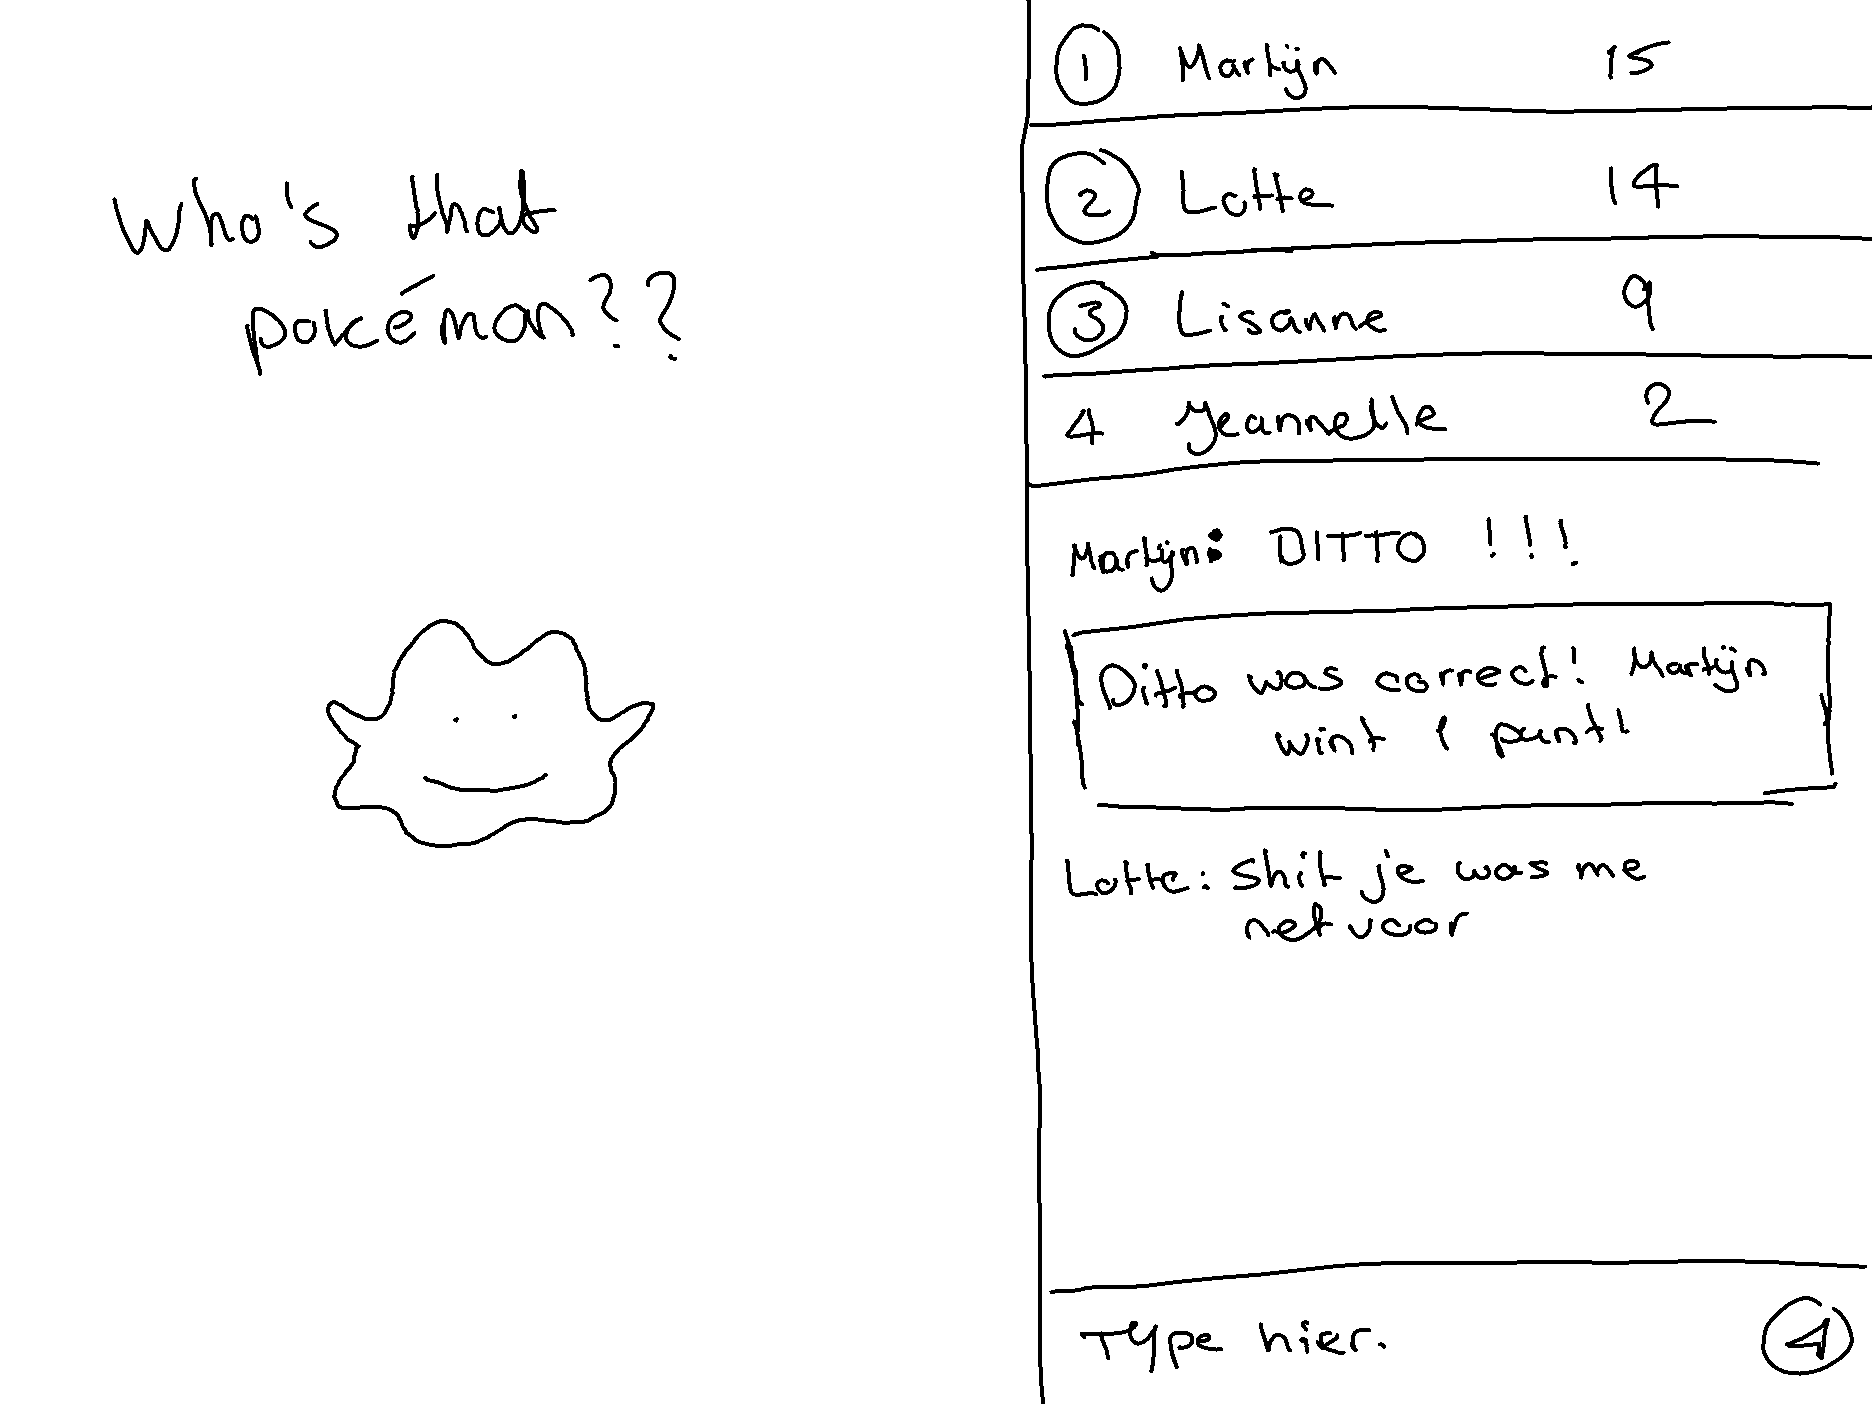 Who's that
pokémon??
1 Martijn 15
2 Lotte 14
3 Lisanne 9
4 Jeannelle 2
Martijn: DITTO !!!
Ditto was correct! Martijn
wint 1 punt!
Lotte: Shit je was me
net voor
Type hier.